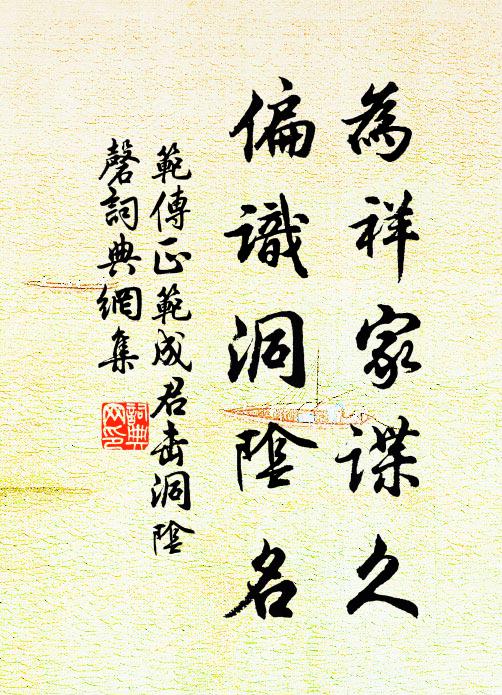 為祥家諜久
偏識洞陰名
範傳正範成君击洞陰
磬詞典網集
詞典网印